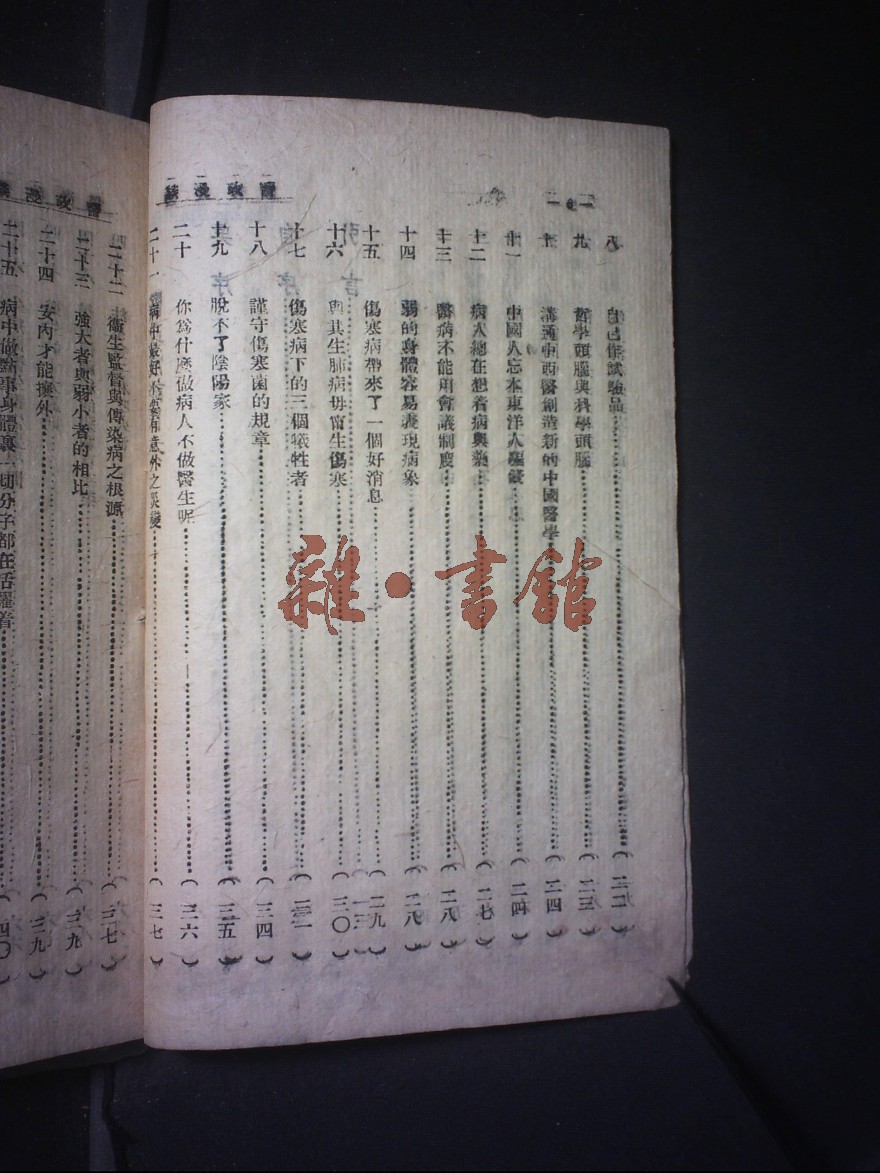 八 自己作試驗品 (二二)
九 哲學頭腦與科學頭腦 (二三)
十 溝通中西醫創造新的中國醫學 (二四)
十一 中國人忘本東洋人 (二四)
十二 病人總在想着病與藥 (二七)
十三 醫病不能用會議制度 (二八)
十四 弱的身體容易表現病象 (二八)
十五 傷寒病帶來了一個好消息 (二九)
十六 與其生肺病毋甯生傷寒 (三〇)
十七 傷寒病下的三個犧牲者
十八 謹守傷寒菌的規章 (三四)
十九 脫不了陰陽家 (三五)
二十 你爲什麼做病人不做醫生呢 (三六)
二十一 病中最好不要有意外之災變 (三七)
二十二 衞生監督與傳染病之根源 (三七)
二十三 強大者與弱小者的相比 (三九)
二十四 安內才能攘外 (三九)
二十五 病中做點事身體裏一切分子都在活躍着 (四〇)
雜·書館